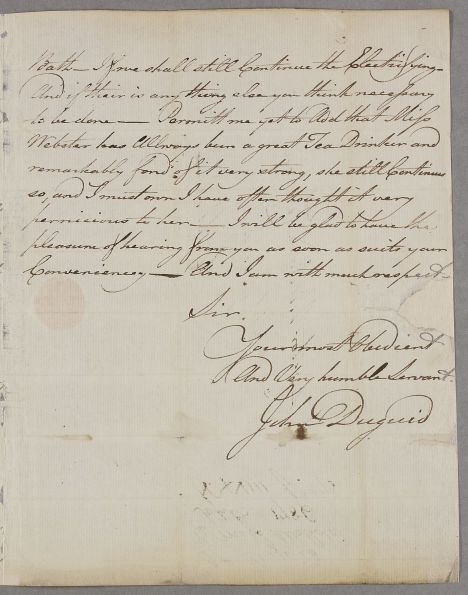 Bath — If we shall still Continue the Electrifying —
And if their is any thing else you think necessary
to be done — Permitt me yet to Add that Miss
Webster has Allways been a great Tea Drinker and
remarkably fond of it very strong, she still Continues
so, and I must own I have often thought it very
pernicious to her — I will be glad to have the
pleasure of hearing from you as soon as suits your
Conveniencey — And I am with much respect —
Sir
Your most Obedient
And Very humble Servant
John Duguid